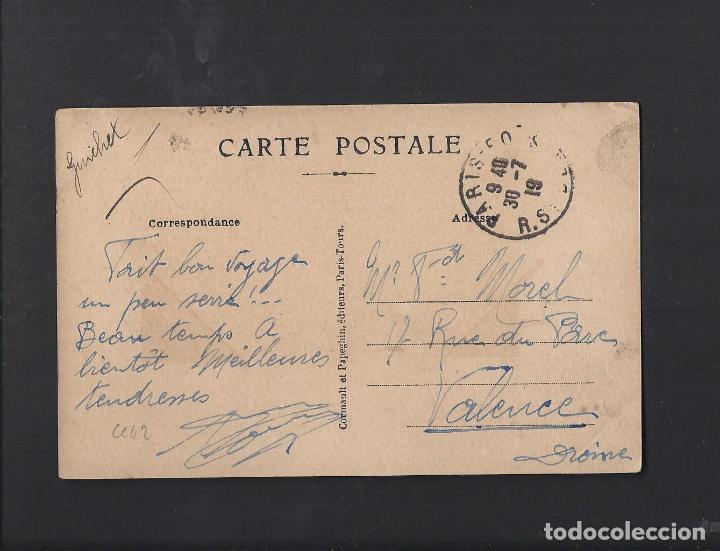 Guichet
CARTE POSTALE
PARIS
9 40
30 -7
19
R. S
Correspondance
Adresse
Fait bon voyage
un peu serré!...
Beau temps A
bientôt Meilleures
tendresses
Cormault et Papeghin, éditeurs, Paris-Tours.
Mr Fd Morel
17 Rue du Parc
Valence
Drôme
todocoleccion.net